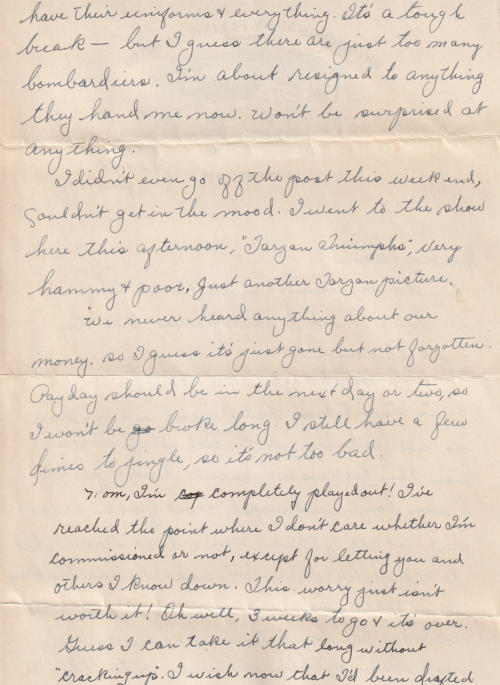 have their uniforms & everything. It's a tough
break – but I guess there are just too many
bombardiers. I'm about resigned to anything
they hand me now. Won't be surprised at
anything.
I didn't even go off the post this week end,
Couldn't get in the mood. I went to the show
here this afternoon, "Tarzan Triumphs", very
hammy & poor. Just another Tarzan picture.
We never heard anything about our
money. so I guess it's just gone but not forgotten.
Payday should be in the next day or two, so
I won't be go broke long. I still have a few
dimes to jingle, so it's not too bad.
Mom, I'm completely played out! I've
reached the point where I don't care whether I'm
commissioned or not, except for letting you and
others I know down. This worry just isn't
worth it! Oh well, 3 weeks to go & it's over.
Guess I can take it that long without
"cracking up". I wish now that I'd been drafted